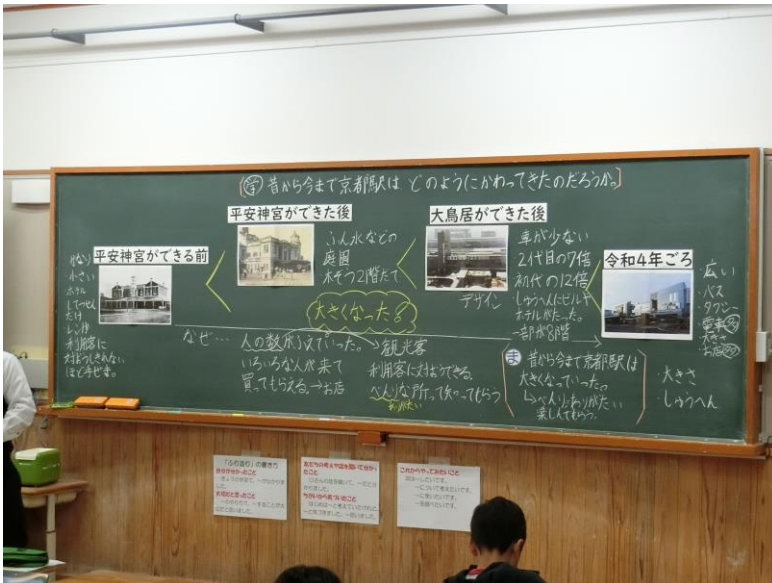 学 昔から今まで京都駅は どのようにかわってきたのだろうか。
平安神宮ができる前
かなり
小さい
ホテル
してつと
だけ
レンガ
利用客に
対おうしきれない
ほど手ぜま。
平安神宮ができた後
ふん水などの
庭園
木ぞう2階だて
大鳥居ができた後
デザイン
車が少ない
2代目の7倍
初代の12倍
しゅうへんにビルや
ホテルがたった。
一部が8階
令和4年ごろ
広い
・バス
・タクシー
・電車
大きさ
・お店
大きくなった?
なぜ… 人の数がふえていった。→観光客
いろいろな人が来て
買ってもらえる→お店
利用客に対おうできる。
べんりな所って知ってもらう
ありがたい
ま 昔から今まで京都駅は
大きくなっていった。
↳べんり・ありがたい
楽しんでもらう。
・大きさ
・しゅうへん
「ふり返り」の書き方
自分が分かったこと
大切だと思ったこと
友だちの考えや話を聞いて分かっ
たこと
ちがいから気づいたこと
これからやってみたいこと